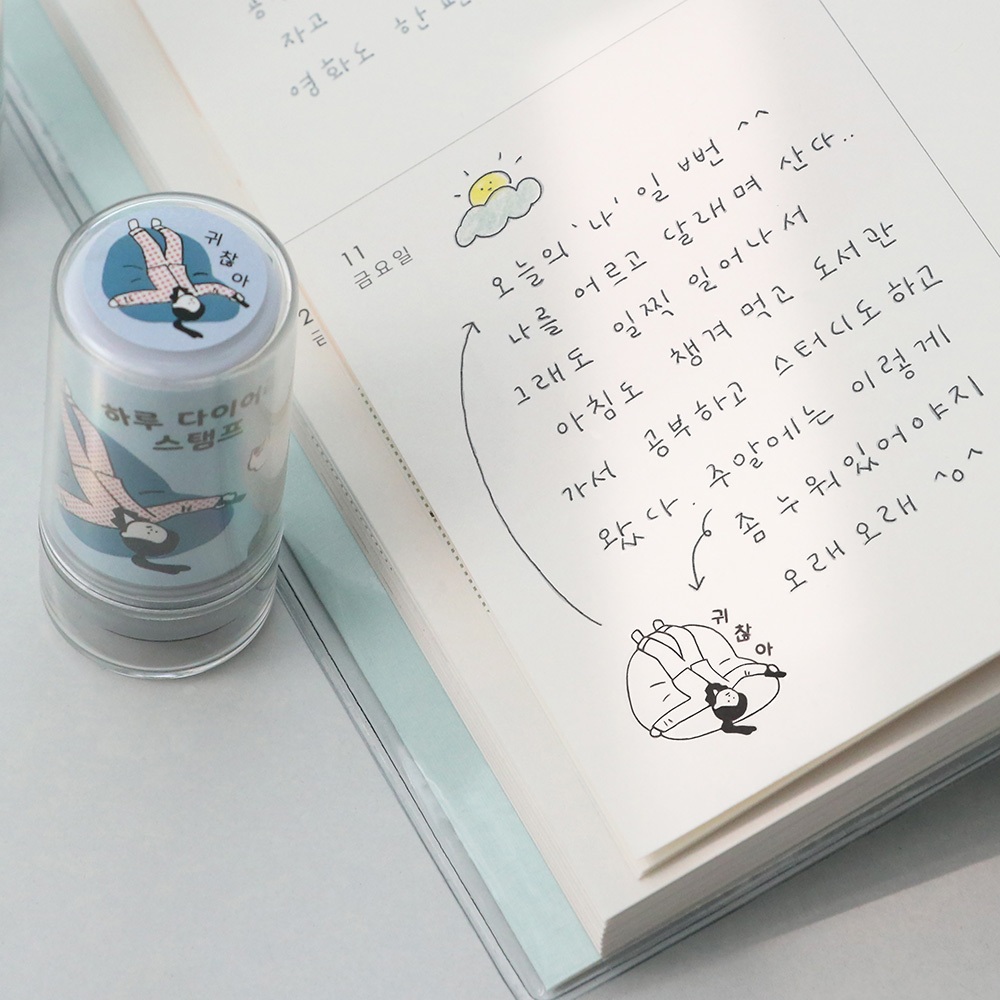 자고
영화도 한 편
11
금요일
오늘의 '나' 일 ㅃ번 ^^
나를 어르고 달래며 산다..
그래도 일찍 일어나서
아침도 챙겨 먹고 도서관
가서 공부하고 스터디도 하고
왔다. 주말에는 이렇게
좀 누워있어야지
오래오래 ^o^
귀
찮
아
귀
찮
아
하루 다이어
스탬프